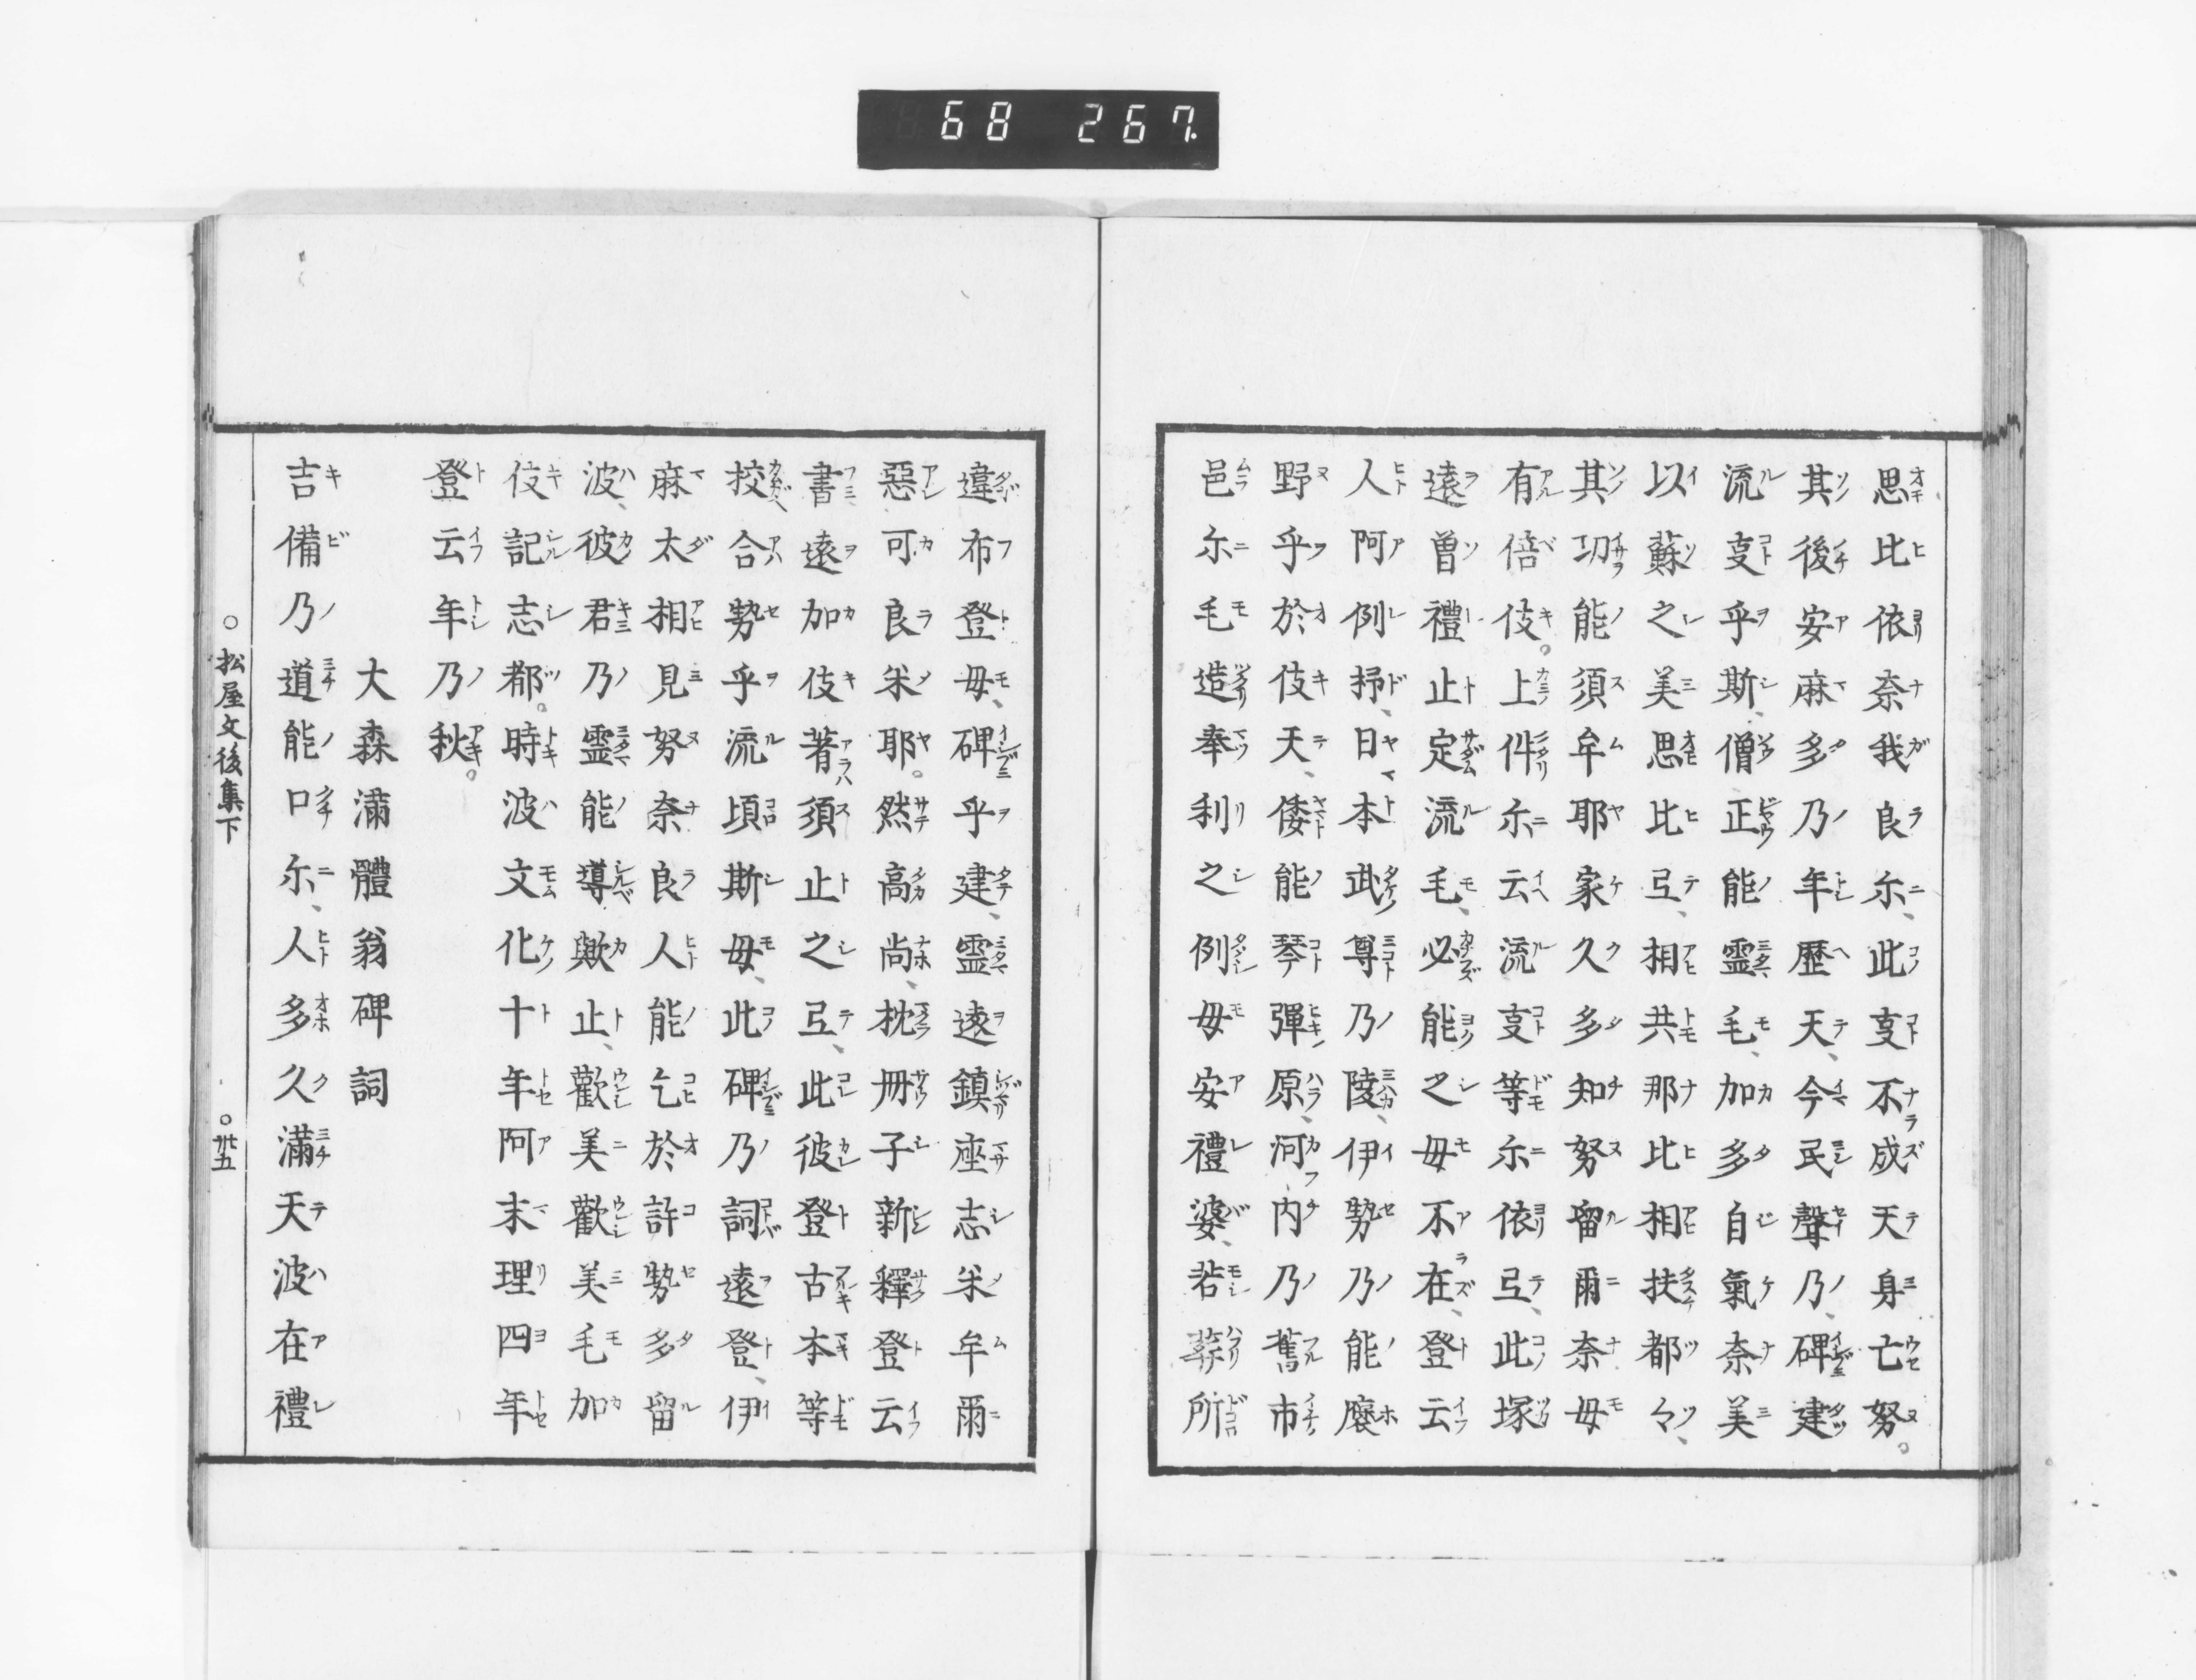 68 267.
思比依奈我良尓、此㕝不成天身亡努。
其後安麻多乃年歷天、今民聲乃、碑建
流㕝乎斯、僧正能靈毛、加多自氣奈美
以蘇之美思比弖、相共那比相扶都々、
其功能須牟耶家久多知努留爾奈毋
有倍伎。上件尓云流㕝等尓依弖、此塚
遠曽禮止定流毛、必能之毋不在、登云
人阿例抒、日本武尊乃陵、伊勢乃能廢
野乎於伎天、倭能琴彈原、河内乃舊市
邑尓毛造奉利之例毋安禮婆、若葬所
違布登毋、碑乎建、靈遠鎮座志米牟爾
惡可良米耶。然高尚、枕冊子新釋登云
書遠加伎著須止之弖、此彼登古本等
挍合勢乎流頃斯毋、此碑乃詞遠登、伊
麻太相見努奈良人能乞於許勢多留
波、彼君乃靈能導歟止、歡美歡美毛加
伎記志都。時波文化十年阿末理四年
登云年乃秋。
大森滿體翁碑詞
吉備乃道能口尓、人多久滿天波在禮
○松屋文後集下 ○卅五